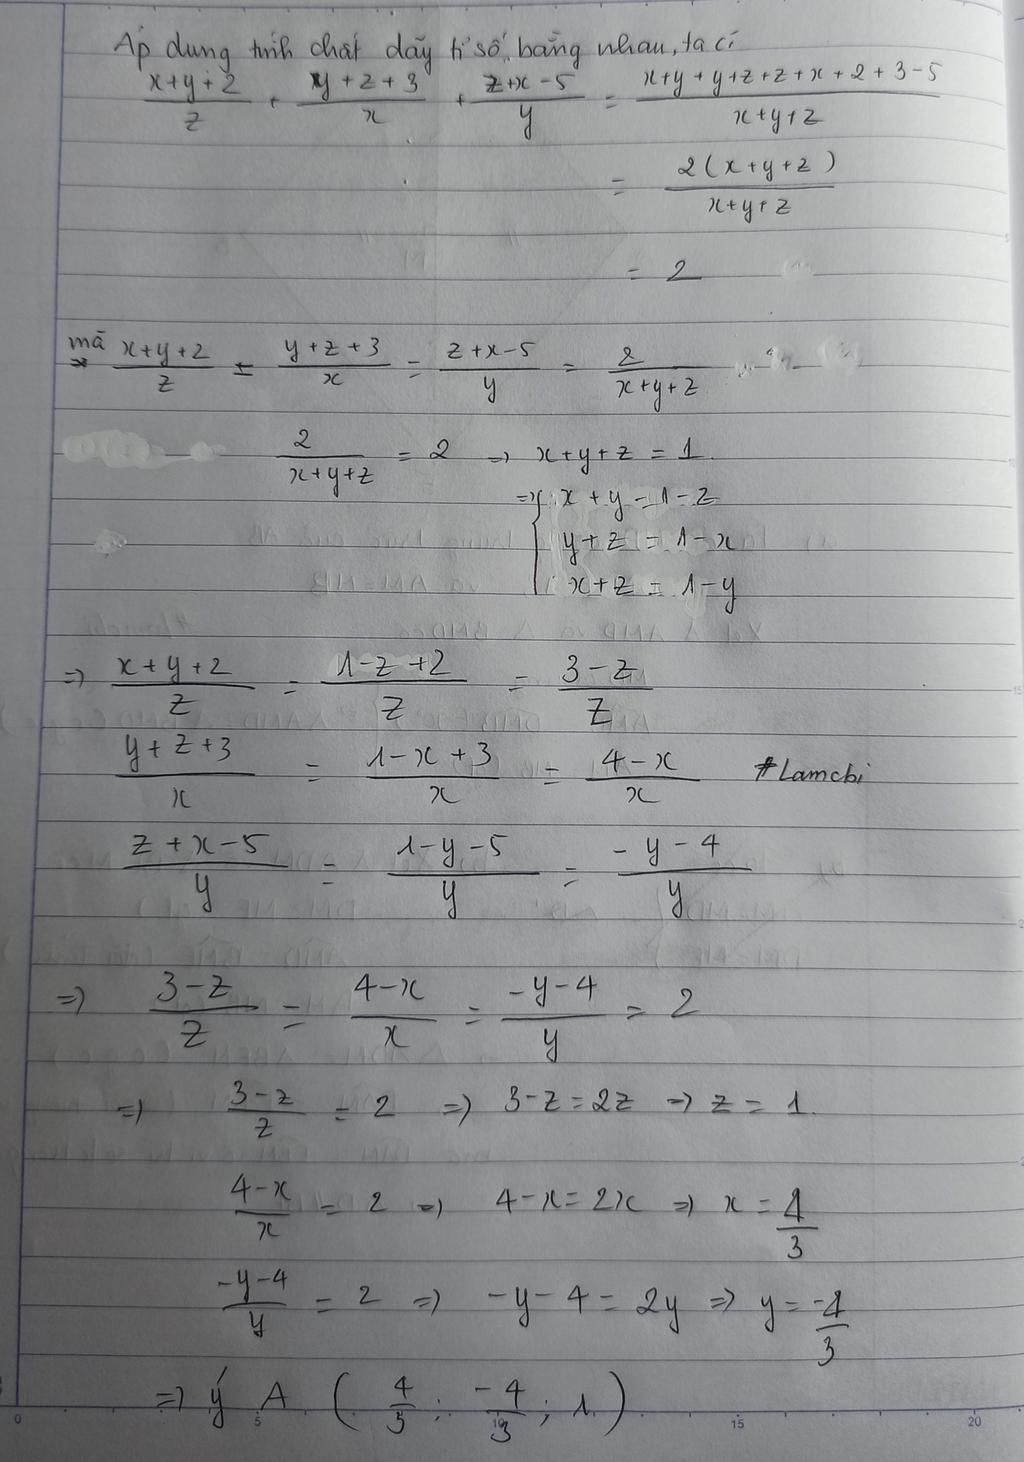 Áp dụng tính chất dãy tỉ số bằng nhau, ta có
(x+y+2)/z + (y+z+3)/x + (z+x-5)/y = (x+y+y+z+z+x+2+3-5)/(x+y+z)
= 2(x+y+z)/(x+y+z)
= 2
mà (x+y+2)/z = (y+z+3)/x = (z+x-5)/y = 2/(x+y+z)
2/(x+y+z) = 2 => x+y+z = 1
=> { x+y = 1-z
y+z = 1-x
x+z = 1-y
=> (x+y+2)/z = (1-z+2)/z = (3-z)/z
(y+z+3)/x = (1-x+3)/x = (4-x)/x #Lamchi
(z+x-5)/y = (1-y-5)/y = (-y-4)/y
=> (3-z)/z = (4-x)/x = (-y-4)/y = 2
=> (3-z)/z = 2 => 3-z=2z => z = 1.
(4-x)/x = 2 => 4-x=2x => x = 4/3
(-y-4)/y = 2 => -y-4=2y => y = -4/3
=> ý A (4/3; -4/3; 1)
0 5 10 15 20